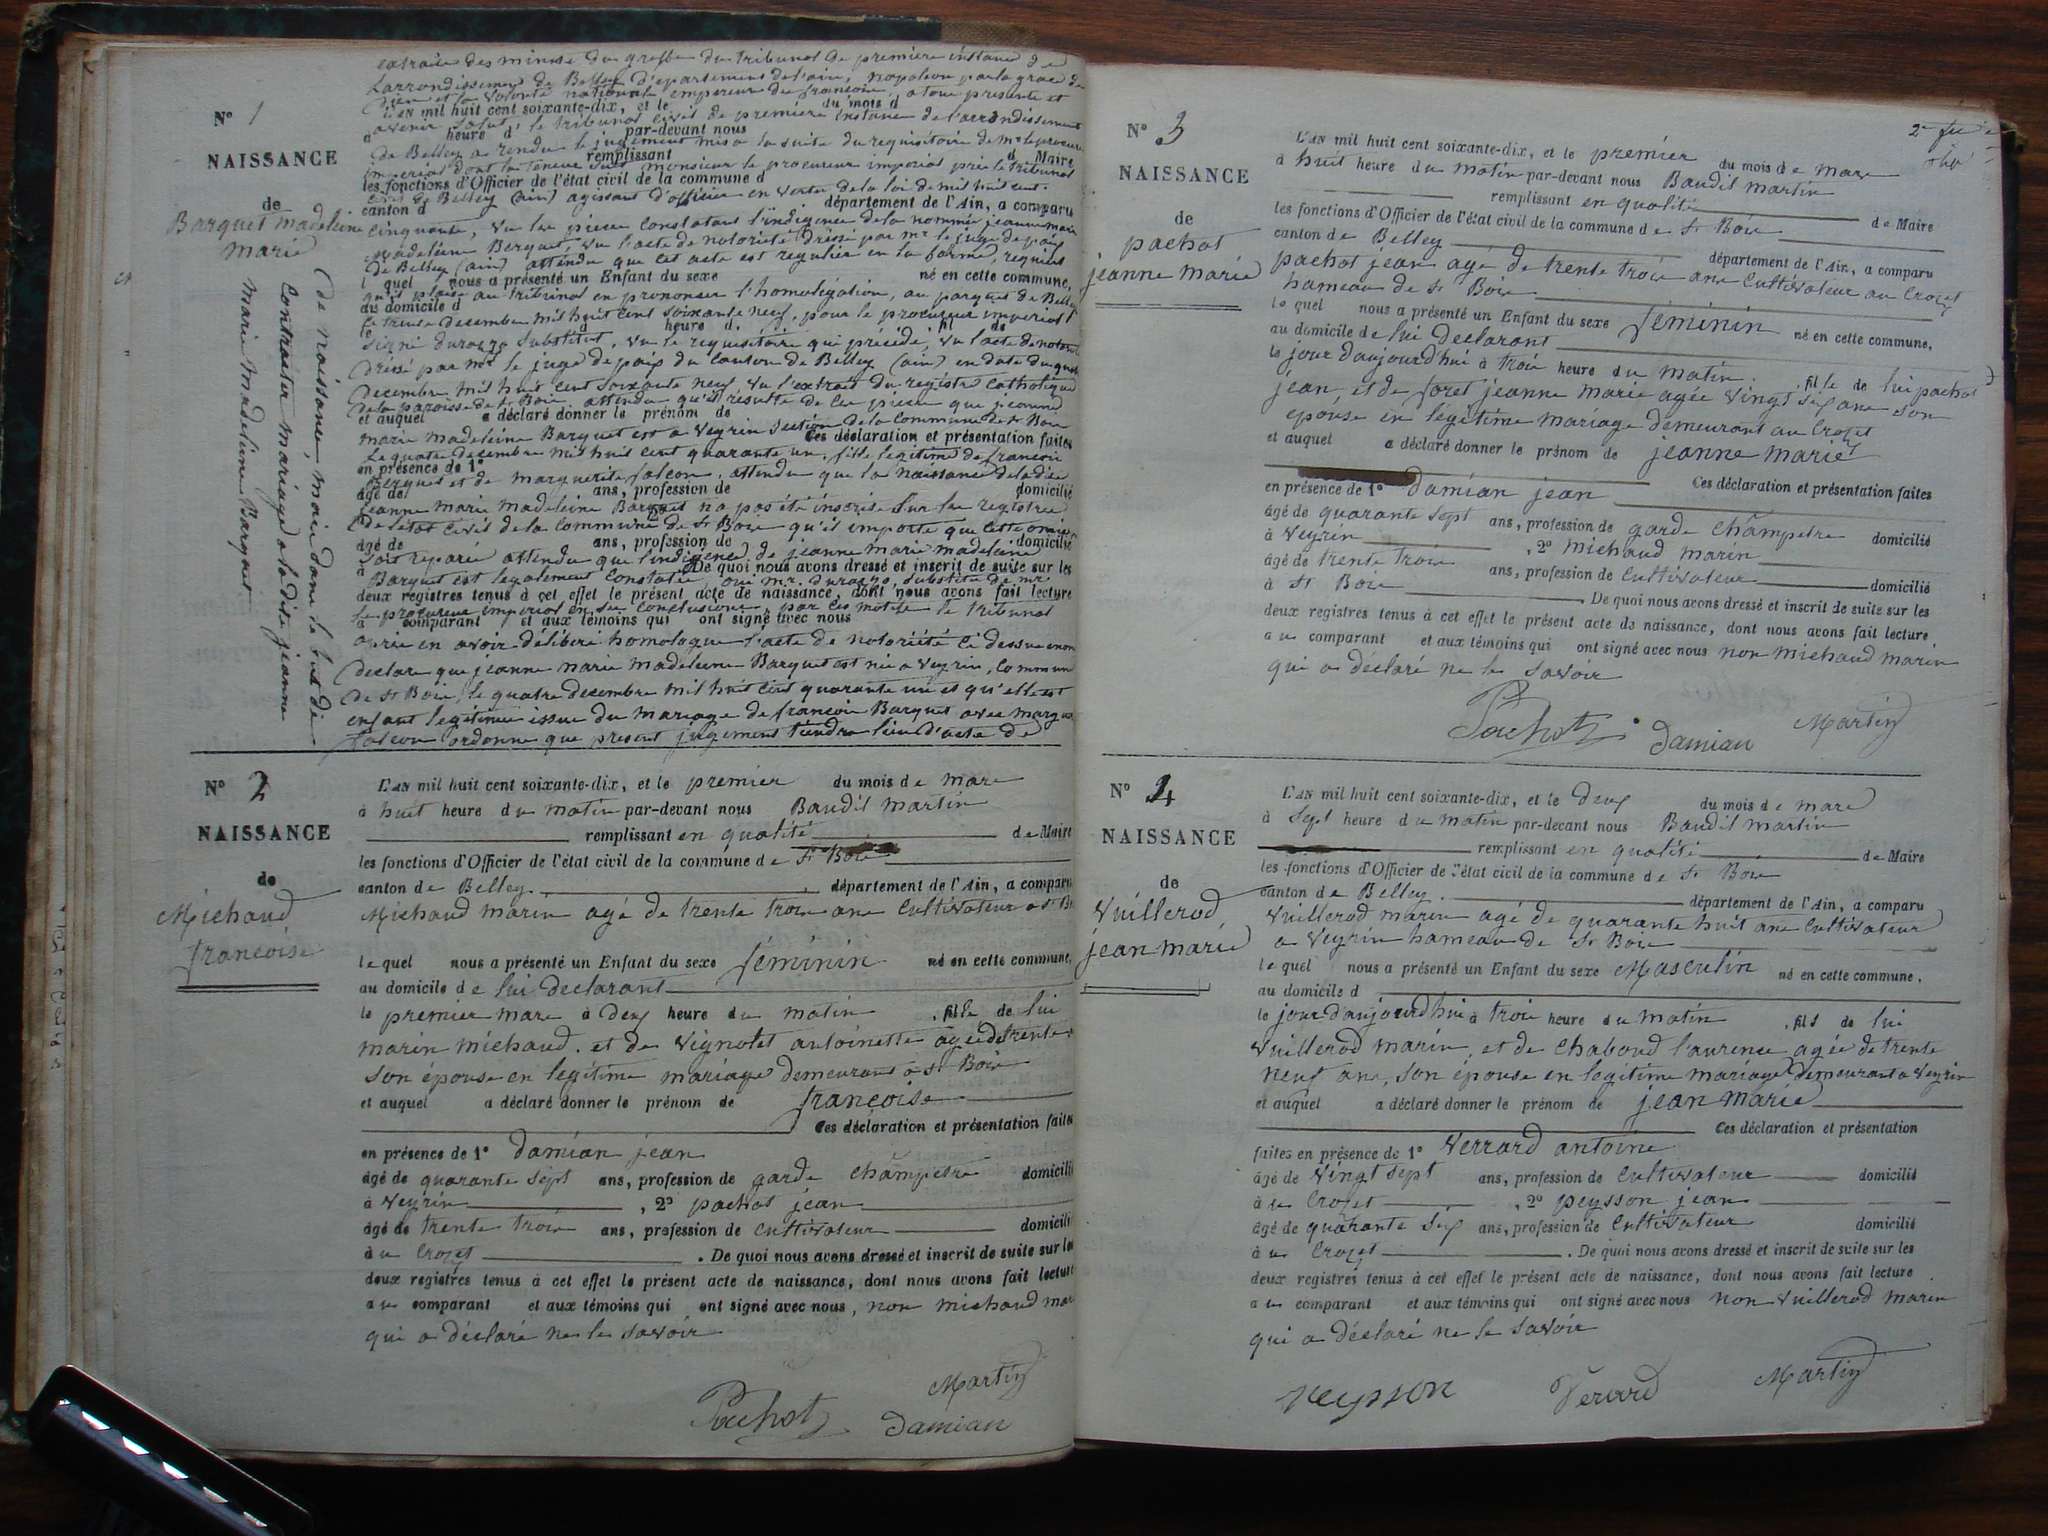 N° 1
NAISSANCE
de
Barquet Madeleine
Marie
extraite des minute du greffe du tribunal de premiere instance de
Larrondissement de Belley d'epartement de l'ain, napoleon par la grace de
Dieu et la volonté nationale empereur des francoire, a tous presents et
L'AN mil huit cent soixante-dix, et le du mois d
avenir salut, le tribunal civil de premiere instance de l'arrondissement
à heure d par-devant nous
de Belley a rendu le jugement mis a la suite du requisitoire de mr le procureur
remplissant d Maire
imperial dont la teneur suit monsieur le procureur imperial prie le tribunal
les fonctions d'Officier de l'état civil de la commune d
civil de Belley (ain) agissant d'officier en vertu de la loi de mil huit cent
canton d département de l'Ain, a comparu
cinquante, vu les pieces constatant l'indigence de la nommée jeanne marie
madeleine Berquet, vu l'acte de notorieté dréssé par mr le juge de paix
de Belley (ain) attendu que cet acte est regulier en la forme, requiers
l quel nous a présenté un Enfant du sexe né en cette commune,
qu'il plaise au tribunal en prononser l'homologation, au parquet de Belley
au domicile d
le trente decembre mil huit cent soixante neuf, pour le procureur imperial
le à heure d fil de
signé durazzo substitut, vu le requisitoire qui précéde, vu l'acte de notorieté
dréssé par mr le juge de paix du canton de Belley (ain) en date du quatre
decembre mil huit cent soixante neuf, vu l'extrait du registre catholique
de la paroisse de St Boie, attendu qu'il résulte de ces pieces que jeanne
et auquel a déclaré donner le prénom de
marie madeleine Barquet est a Veyrin section de la commune de St Boie
Ces déclaration et présentation faites
le quatre decembre mil huit cent quarante un, fille legitime de francois
en présence de 1°
Berquet et de marguerite falcon, attendu que la naissance de la dite
âgé de ans, profession de domicilié
jeanne marie madeleine Barquet na pas été inscrise sur les registres
de letat civil de la commune de St Boie qu'il importe que cette omission
âgé de ans, profession de domicilié
soit reparée attendu que l'indigence de jeanne marie madeleine
à De quoi nous avons dressé et inscrit de suite sur les
Barquet est legalement constatée, oui mr. durazzo, substitu de mr
deux registres tenus à cet effet le présent acte de naissance, dont nous avons fait lecture
le procureur imperial en ses conclusions, par ces motifs le tribunal
a comparant et aux témoins qui ont signé avec nous
aprie en avoir déliberé homologue l'acte de notorieté ci dessus enoncé
declare que jeanne marie madeleine Barquet est née a Veyrin, commune
de St Boie, le quatre decembre mil huit cent quarante un et qu'elle est
enfant legitime issue du mariage de francoie Barquet avec margue
falcon ordonne que present jugement tiendra lieu d'acte de
de naissance, mois dans le but de
contracter mariage a la dite jeanne
Marie Madeleine Barquet
N° 2
NAISSANCE
de
Michaud
francoise
L'AN mil huit cent soixante-dix, et le premier du mois de mare
à huit heure du matin par-devant nous Baudil Martin
remplissant en qualité de Maire
les fonctions d'Officier de l'état civil de la commune de St Boie
canton de Belley département de l'Ain, a comparu
Michaud marin agé de trente troie ane cultivateur a St Boie
le quel nous a présenté un Enfant du sexe féminin né en cette commune,
au domicile de lui declarant
le premier mare à deux heure du matin, fille de lui
marin michaud et de Vignolet antoinette agée de trente
son épouse en legitime mariage demeurans a St Boie
et auquel a déclaré donner le prénom de francoise
Ces déclaration et présentation faites
en présence de 1° damian jean
âgé de quarante sept ans, profession de garde champetre domicilié
à Veyrin, 2° pachot jean
âgé de trente troie ans, profession de cultivateur domicilié
à u Crozet. De quoi nous avons dressé et inscrit de suite sur les
deux registres tenus à cet effet le présent acte de naissance, dont nous avons fait lecture
a u comparant et aux témoins qui ont signé avec nous, non michaud mar
qui a déclaré ne le savoir
Martin
Pachot Damian
N° 3
NAISSANCE
de
pachot
jeanne marie
L'AN mil huit cent soixante-dix, et le premier du mois de mare
à huit heure du matin par-devant nous Baudil Martin
remplissant en qualité
les fonctions d'Officier de l'état civil de la commune de St Boie de Maire
canton de Belley département de l'Ain, a comparu
pachot jean agé de trente troie ane cultivateur au Crozet
hameau de St Boie
le quel nous a présenté un Enfant du sexe féminin né en cette commune,
au domicile de lui declarant
le jour d'aujourd'hui à troie heure du matin, fille de lui pachot
jean, et de foret jeanne marie agée vingt six ane son
epouse en legitime mariage demeurant au Crozet
et auquel a déclaré donner le prénom de jeanne marie
Ces déclaration et présentation faites
en présence de 1° damian jean
âgé de quarante sept ans, profession de garde champetre domicilié
à Veyrin, 2° michaud marin
âgé de trente troie ans, profession de cultivateur domicilié
à St Boie. De quoi nous avons dressé et inscrit de suite sur les
deux registres tenus à cet effet le présent acte de naissance, dont nous avons fait lecture
a u comparant et aux témoins qui ont signé avec nous non michaud marin
qui a déclaré ne le savoir
Pachot Damian Martin
N° 4
NAISSANCE
de
Vuillerod
jean marie
L'AN mil huit cent soixante-dix, et le deux du mois de mare
à sept heure du matin par-devant nous Baudil Martin
remplissant en qualité de Maire
les fonctions d'Officier de l'état civil de la commune de St Boie
canton de Belley département de l'Ain, a comparu
Vuillerod marin agé de quarante huit ane cultivateur
a Veyrin hameau de St Boie
le quel nous a présenté un Enfant du sexe Masculin né en cette commune,
au domicile d
le jour d'aujourd'hui à troie heure du matin, fils de lui
Vuillerod marin, et de Chaboud laurence agée de trente
neuf ans, son épouse en legitime mariage demeurant a Veyrin
et auquel a déclaré donner le prénom de jean marie
Ces déclaration et présentation
faites en présence de 1° Verrard antoine
âgé de vingt sept ans, profession de cultivateur domicilié
à u Crozet, 2° peysson jean
âgé de quarante six ans, profession de cultivateur domicilié
à u Crozet. De quoi nous avons dressé et inscrit de suite sur les
deux registres tenus à cet effet le présent acte de naissance, dont nous avons fait lecture
a u comparant et aux témoins qui ont signé avec nous non Vuillerod marin
qui a déclaré ne le savoir
Peysson Verard Martin